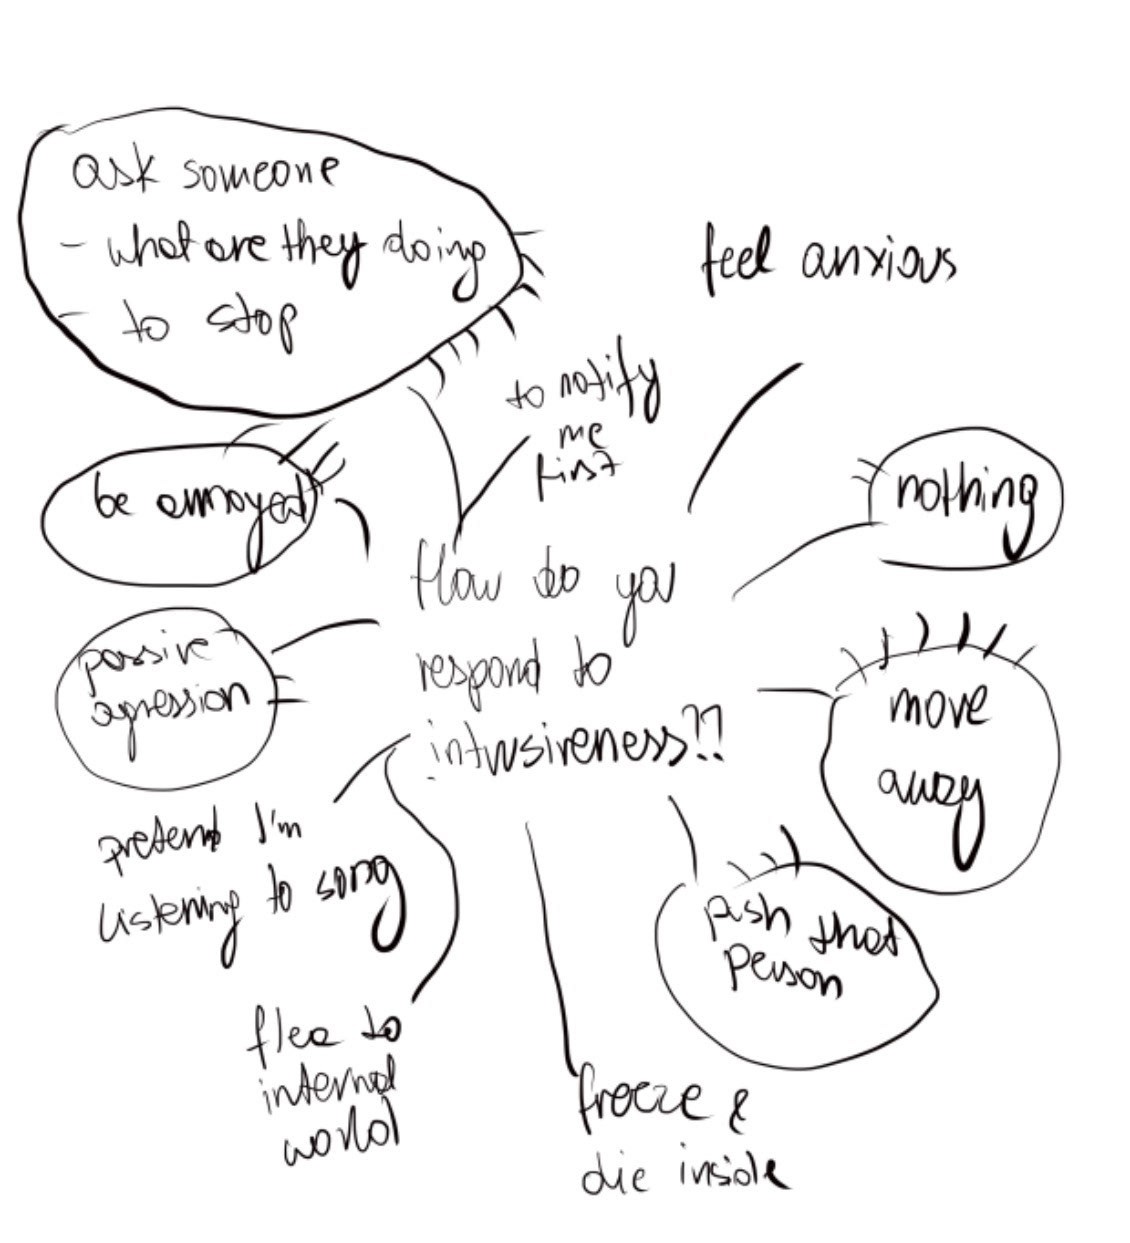 ask someone
- what are they doing
- to stop
feel anxious
to notify
me
first
nothing
be annoyed
How do you
respond to
intrusiveness??
passive
agression
move
away
pretend I'm
listening to song
push that
person
flee to
internal
world
freeze &
die inside